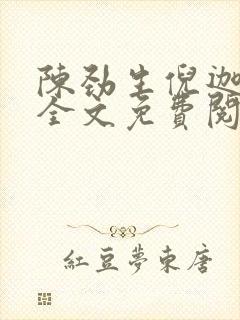 陳勁生倪迦
全文免費閱
紅豆夢東唐